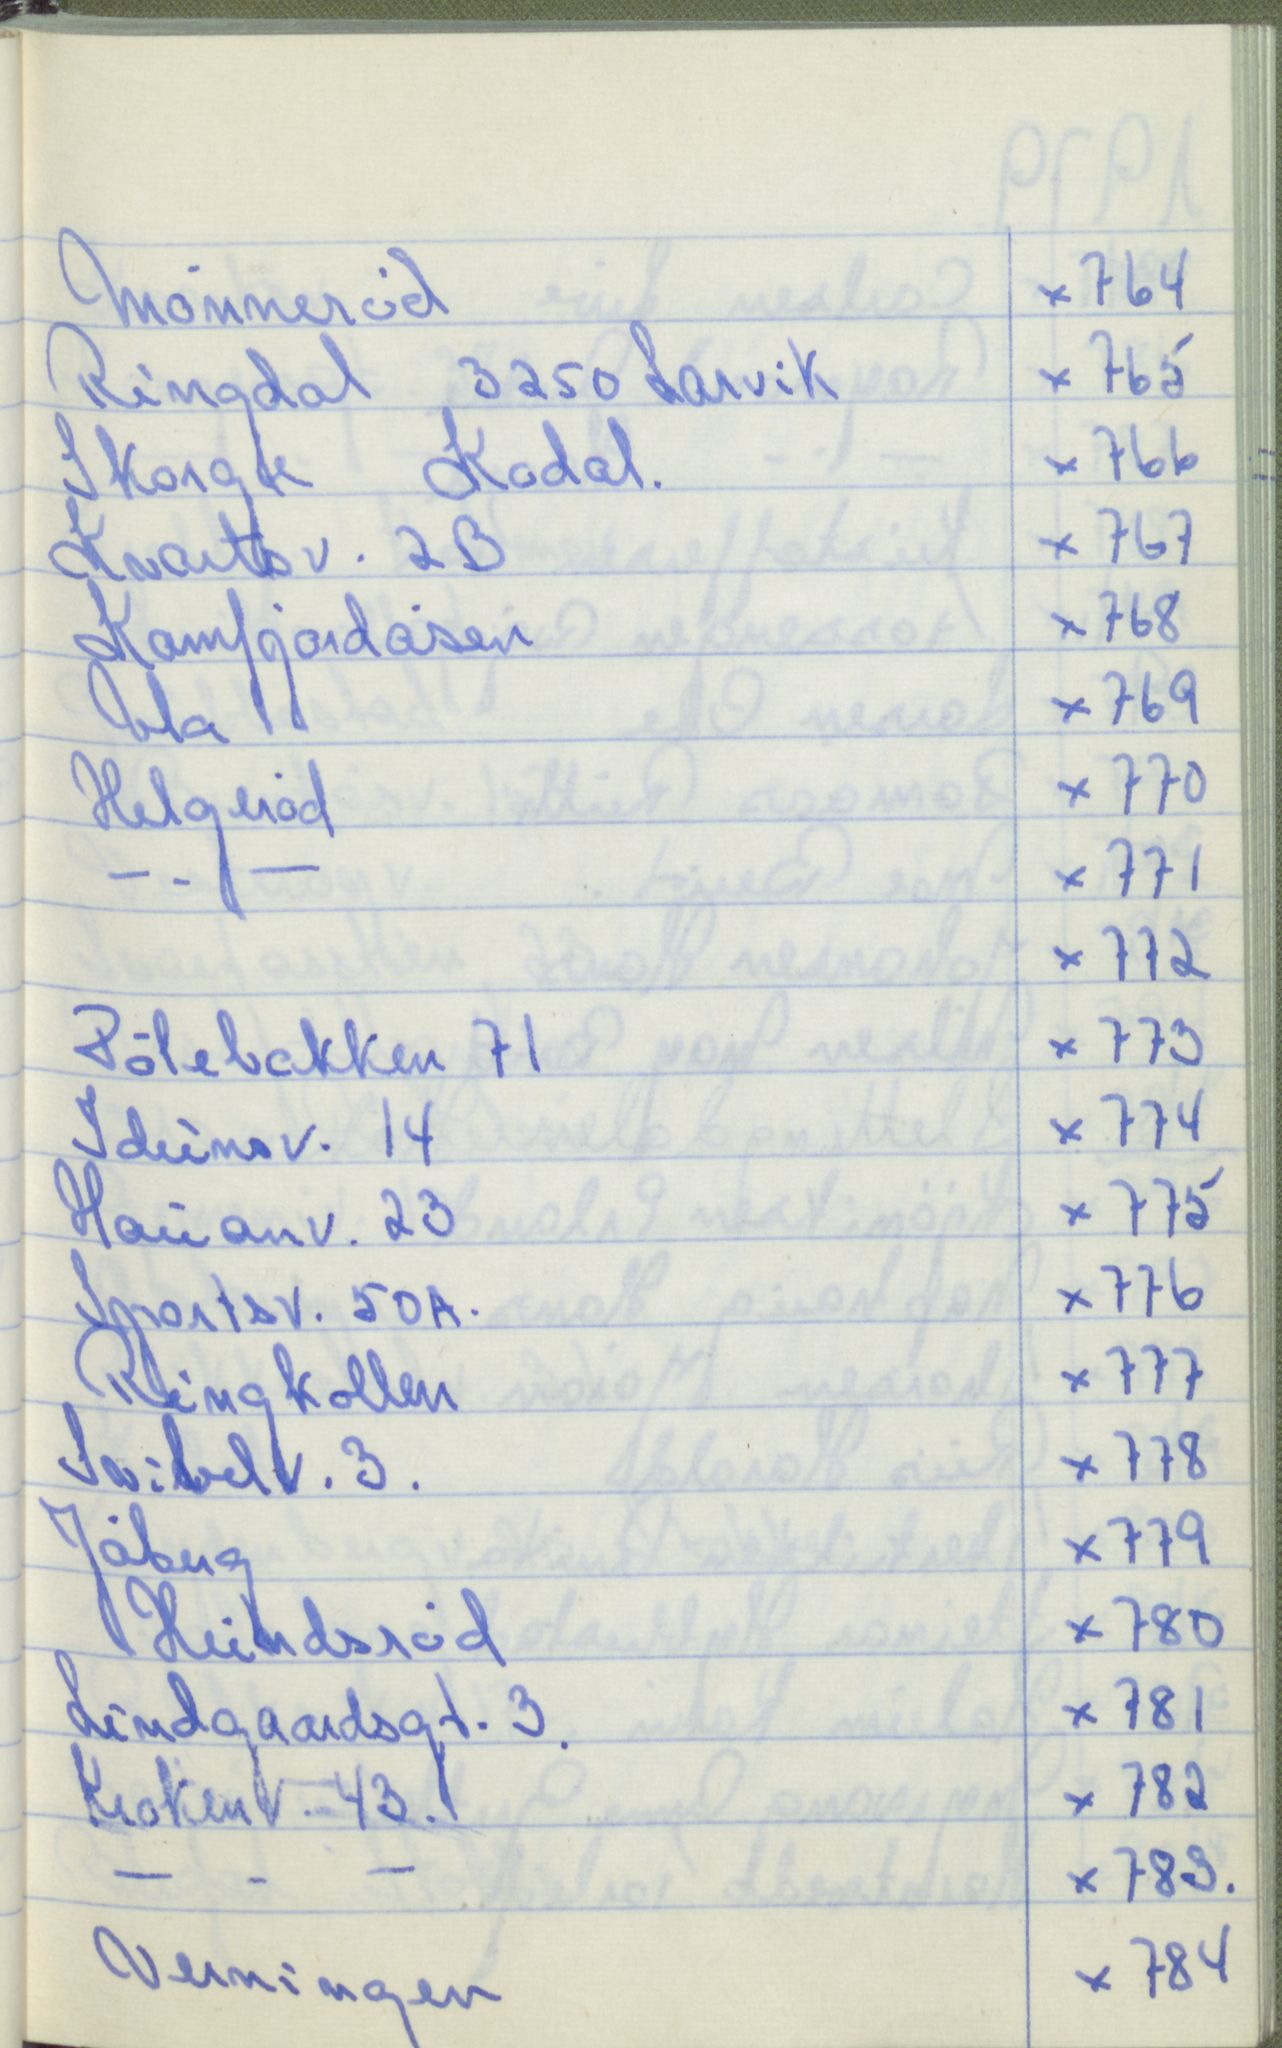 Månnerød x 764
Ringdal 3250 Larvik x 765
Skorge Kodal. x 766
Kvartsv. 2B x 767
Kamfjordåsen x 768
Ula x 769
Helgerød x 770
- - - x 771
x 772
Pølebakken 71 x 773
Iduinsv. 14 x 774
Hauanv. 23 x 775
Sportsv. 50A. x 776
Ringkollen x 777
v. 3. x 778
Jåberg x 779
x 780
Lindgaardsgt. 3. x 781
Krokenv. 43. x 782
- - - x 783.
Verningen x 784